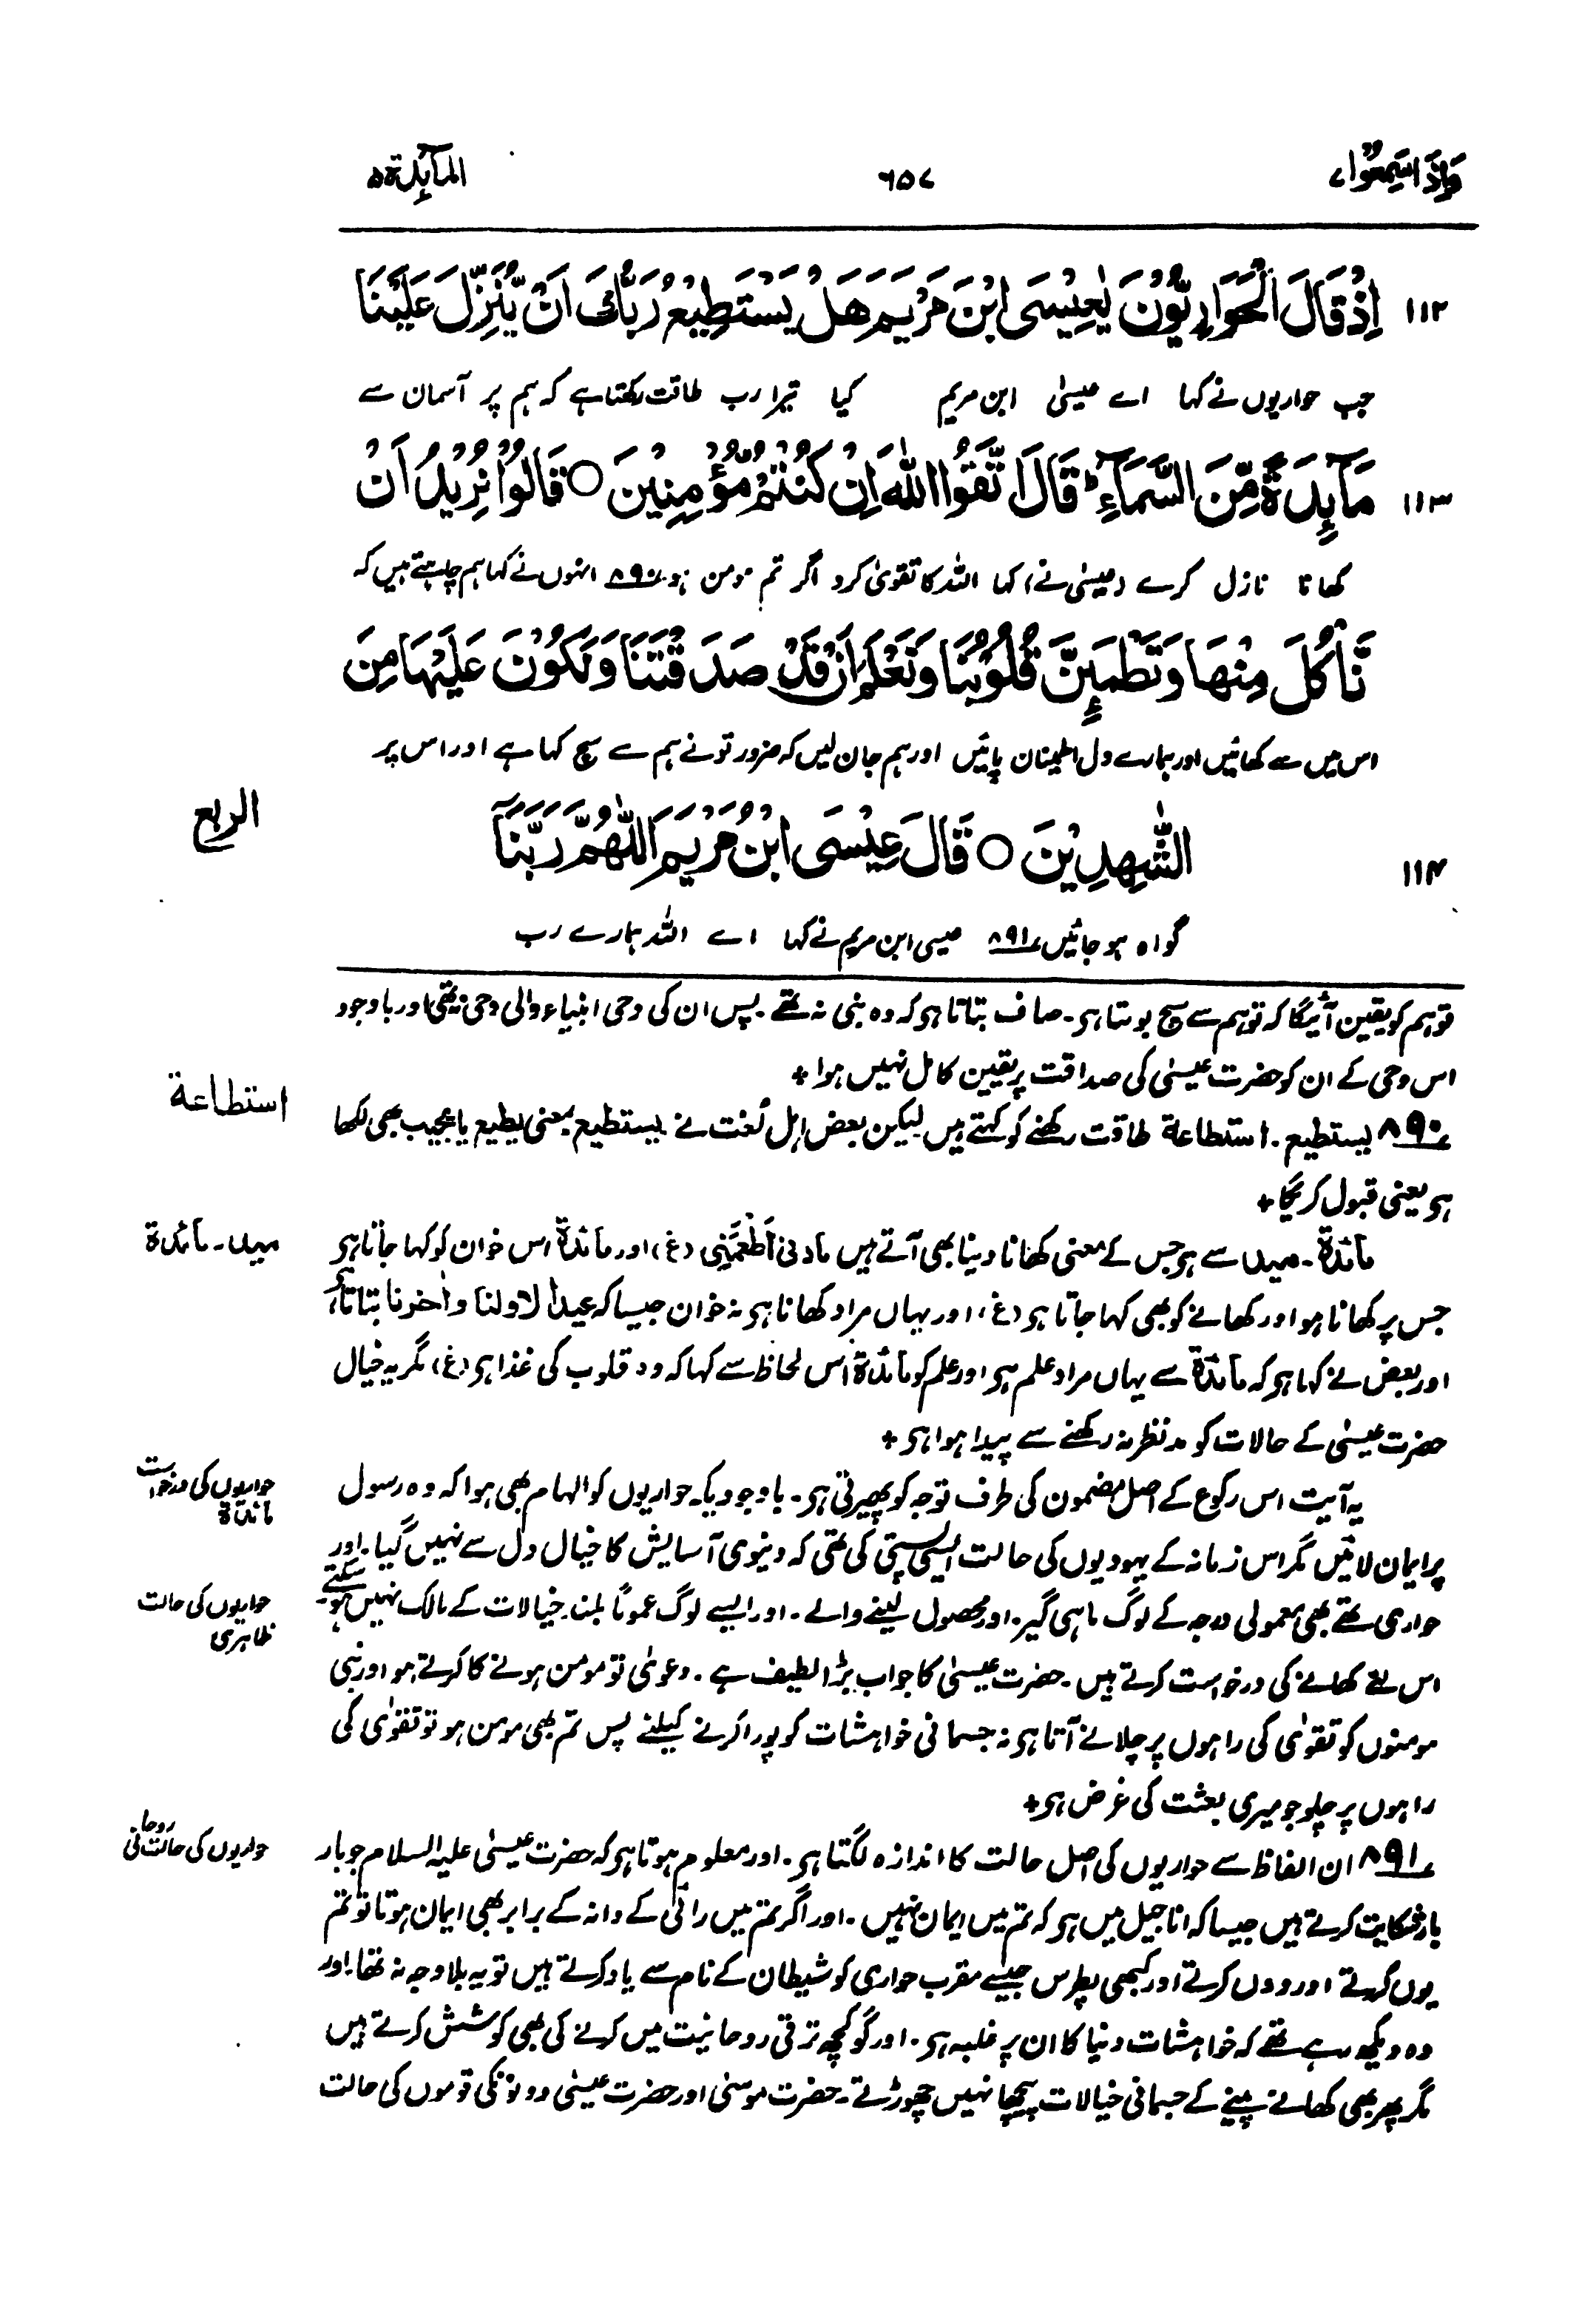 واذا سمعوا ۷
۶۵۷
المآئدة ۵
۱۱۲ اِذْ قَالَ الْحَوَارِيُّوْنَ يٰعِيْسَى ابْنَ مَرْيَمَ هَلْ يَسْتَطِيْعُ رَبُّكَ اَنْ يُّنَزِّلَ عَلَيْنَا
جب حواریوں نے کہا اے عیسیٰ ابن مریم کیا تیرا رب طاقت رکھتا ہے کہ ہم پر آسمان سے
۱۱۳ مَآىِٕدَةً مِّنَ السَّمَآءِ ؕ قَالَ اتَّقُوا اللّٰهَ اِنْ كُنْتُمْ مُّؤْمِنِيْنَ ○ قَالُوْا نُرِيْدُ اَنْ
کھانا نازل کرے (عیسیٰ نے) کہا اللہ کا تقویٰ کرو اگر تم مومن ہو ۸۹۰ انہوں نے کہا ہم چاہتے ہیں کہ
نَّاْكُلَ مِنْهَا وَتَطْمَىِٕنَّ قُلُوْبُنَا وَنَعْلَمَ اَنْ قَدْ صَدَقْتَنَا وَنَكُوْنَ عَلَيْهَا مِنَ
اس میں سے کھائیں اور ہمارے دل اطمینان پائیں اور ہم جان لیں کہ ضرور تو نے ہم سے سچ کہا ہے اور اس پر
الربع
۱۱۴ الشّٰهِدِيْنَ ○ قَالَ عِيْسَى ابْنُ مَرْيَمَ اللّٰهُمَّ رَبَّنَآ
گواہ ہو جائیں ۸۹۱ عیسی ابن مریم نے کہا اے اللہ ہمارے رب
تو ہم کو یقین آئیگا کہ تو ہم سے سچ بولتا ہو۔ صاف بتاتا ہو کہ وہ نبی نہ تھے۔ پس ان کی وحی انبیاء والی وحی نہ تھی اور باوجود
اس وحی کے ان کو حضرت عیسیٰ کی صداقت پر یقین کامل نہیں ہوا +
استطاعة
۸۹۰ یستطیع۔ استطاعة طاقت رکھنے کو کہتے ہیں لیکن بعض اہل لغت نے یستطیع بمعنی یطیع یا یجیب بھی لکھا
ہو یعنی قبول کریگا +
مید۔ مآئدة
مآئدة۔ مید سے ہو جس کے معنی کھانا دینا بھی آتے ہیں مادنی اَطْعَمَنِی (غ) اور مآئدة اس خوان کو کہا جاتا ہو
جس پر کھانا ہو اور کھانے کو بھی کہا جاتا ہو (غ) اور یہاں مراد کھانا ہو نہ خوان جیسا کہ عیدا لاولنا واٰخرنا بتاتا ہو
اور بعض نے کہا ہو کہ مآئدة سے یہاں مراد علم ہو اور علم کو مآئدة اس لحاظ سے کہا کہ وہ قلوب کی غذا ہو (غ) مگر یہ خیال
حضرت عیسیٰ کے حالات کو مدنظر نہ رکھنے سے پیدا ہوا ہو +
حواریوں کی درخواست
مائدة
یہ آیت اس رکوع کے اصل مضمون کی طرف توجہ کو پھیرتی ہو۔ باوجودیکہ حواریوں کو الہام بھی ہوا کہ وہ رسول
پر ایمان لائیں مگر اس زمانہ کے یہودیوں کی حالت ایسی پستی کی تھی کہ دنیوی آسایش کا خیال دل سے نہیں گیا۔ اور
حواریوں کی حالت
ظاہری
حواری تھے بھی معمولی درجہ کے لوگ ماہی گیر۔ اور محصول لینے والے۔ اور ایسے لوگ عموماً بلند خیالات کے مالک نہیں ہو سکتے
اس لئے کھانے کی درخواست کرتے ہیں۔ حضرت عیسیٰ کا جواب بڑا لطیف ہے۔ دعویٰ تو مومن ہونے کا کرتے ہو اور نبی
مومنوں کو تقویٰ کی راہوں پر چلانے آتا ہو نہ جسمانی خواہشات کو پورا کرنے کیلئے پس تم بھی مومن ہو تو تقویٰ کی
راہوں پر چلو جو میری بعثت کی غرض ہو +
حواریوں کی حالت روحانی
۸۹۱ ان الفاظ سے حواریوں کی اصل حالت کا اندازہ لگتا ہو۔ اور معلوم ہوتا ہو کہ حضرت عیسیٰ علیہ السلام جو بار
بار شکایت کرتے ہیں جیسا کہ اناجیل میں ہو کہ تم میں ایمان نہیں۔ اور اگر تم میں رائی کے دانہ کے برابر بھی ایمان ہوتا تو تم
یوں کرتے اور ووں کرتے اور کبھی پطرس جیسے مقرب حواری کو شیطان کے نام سے یاد کرتے ہیں تو یہ بلاوجہ نہ تھا۔ اور
وہ دیکھ رہے تھے کہ خواہشات دنیا کا ان پر غلبہ ہو۔ اور گو کچھ ترقی روحانیت میں کرنے کی بھی کوشش کرتے ہیں
مگر پھر بھی کھانے پینے کے جسمانی خیالات پیچھا نہیں چھوڑتے۔ حضرت موسیٰ اور حضرت عیسیٰ دونوں کی قوموں کی حالت